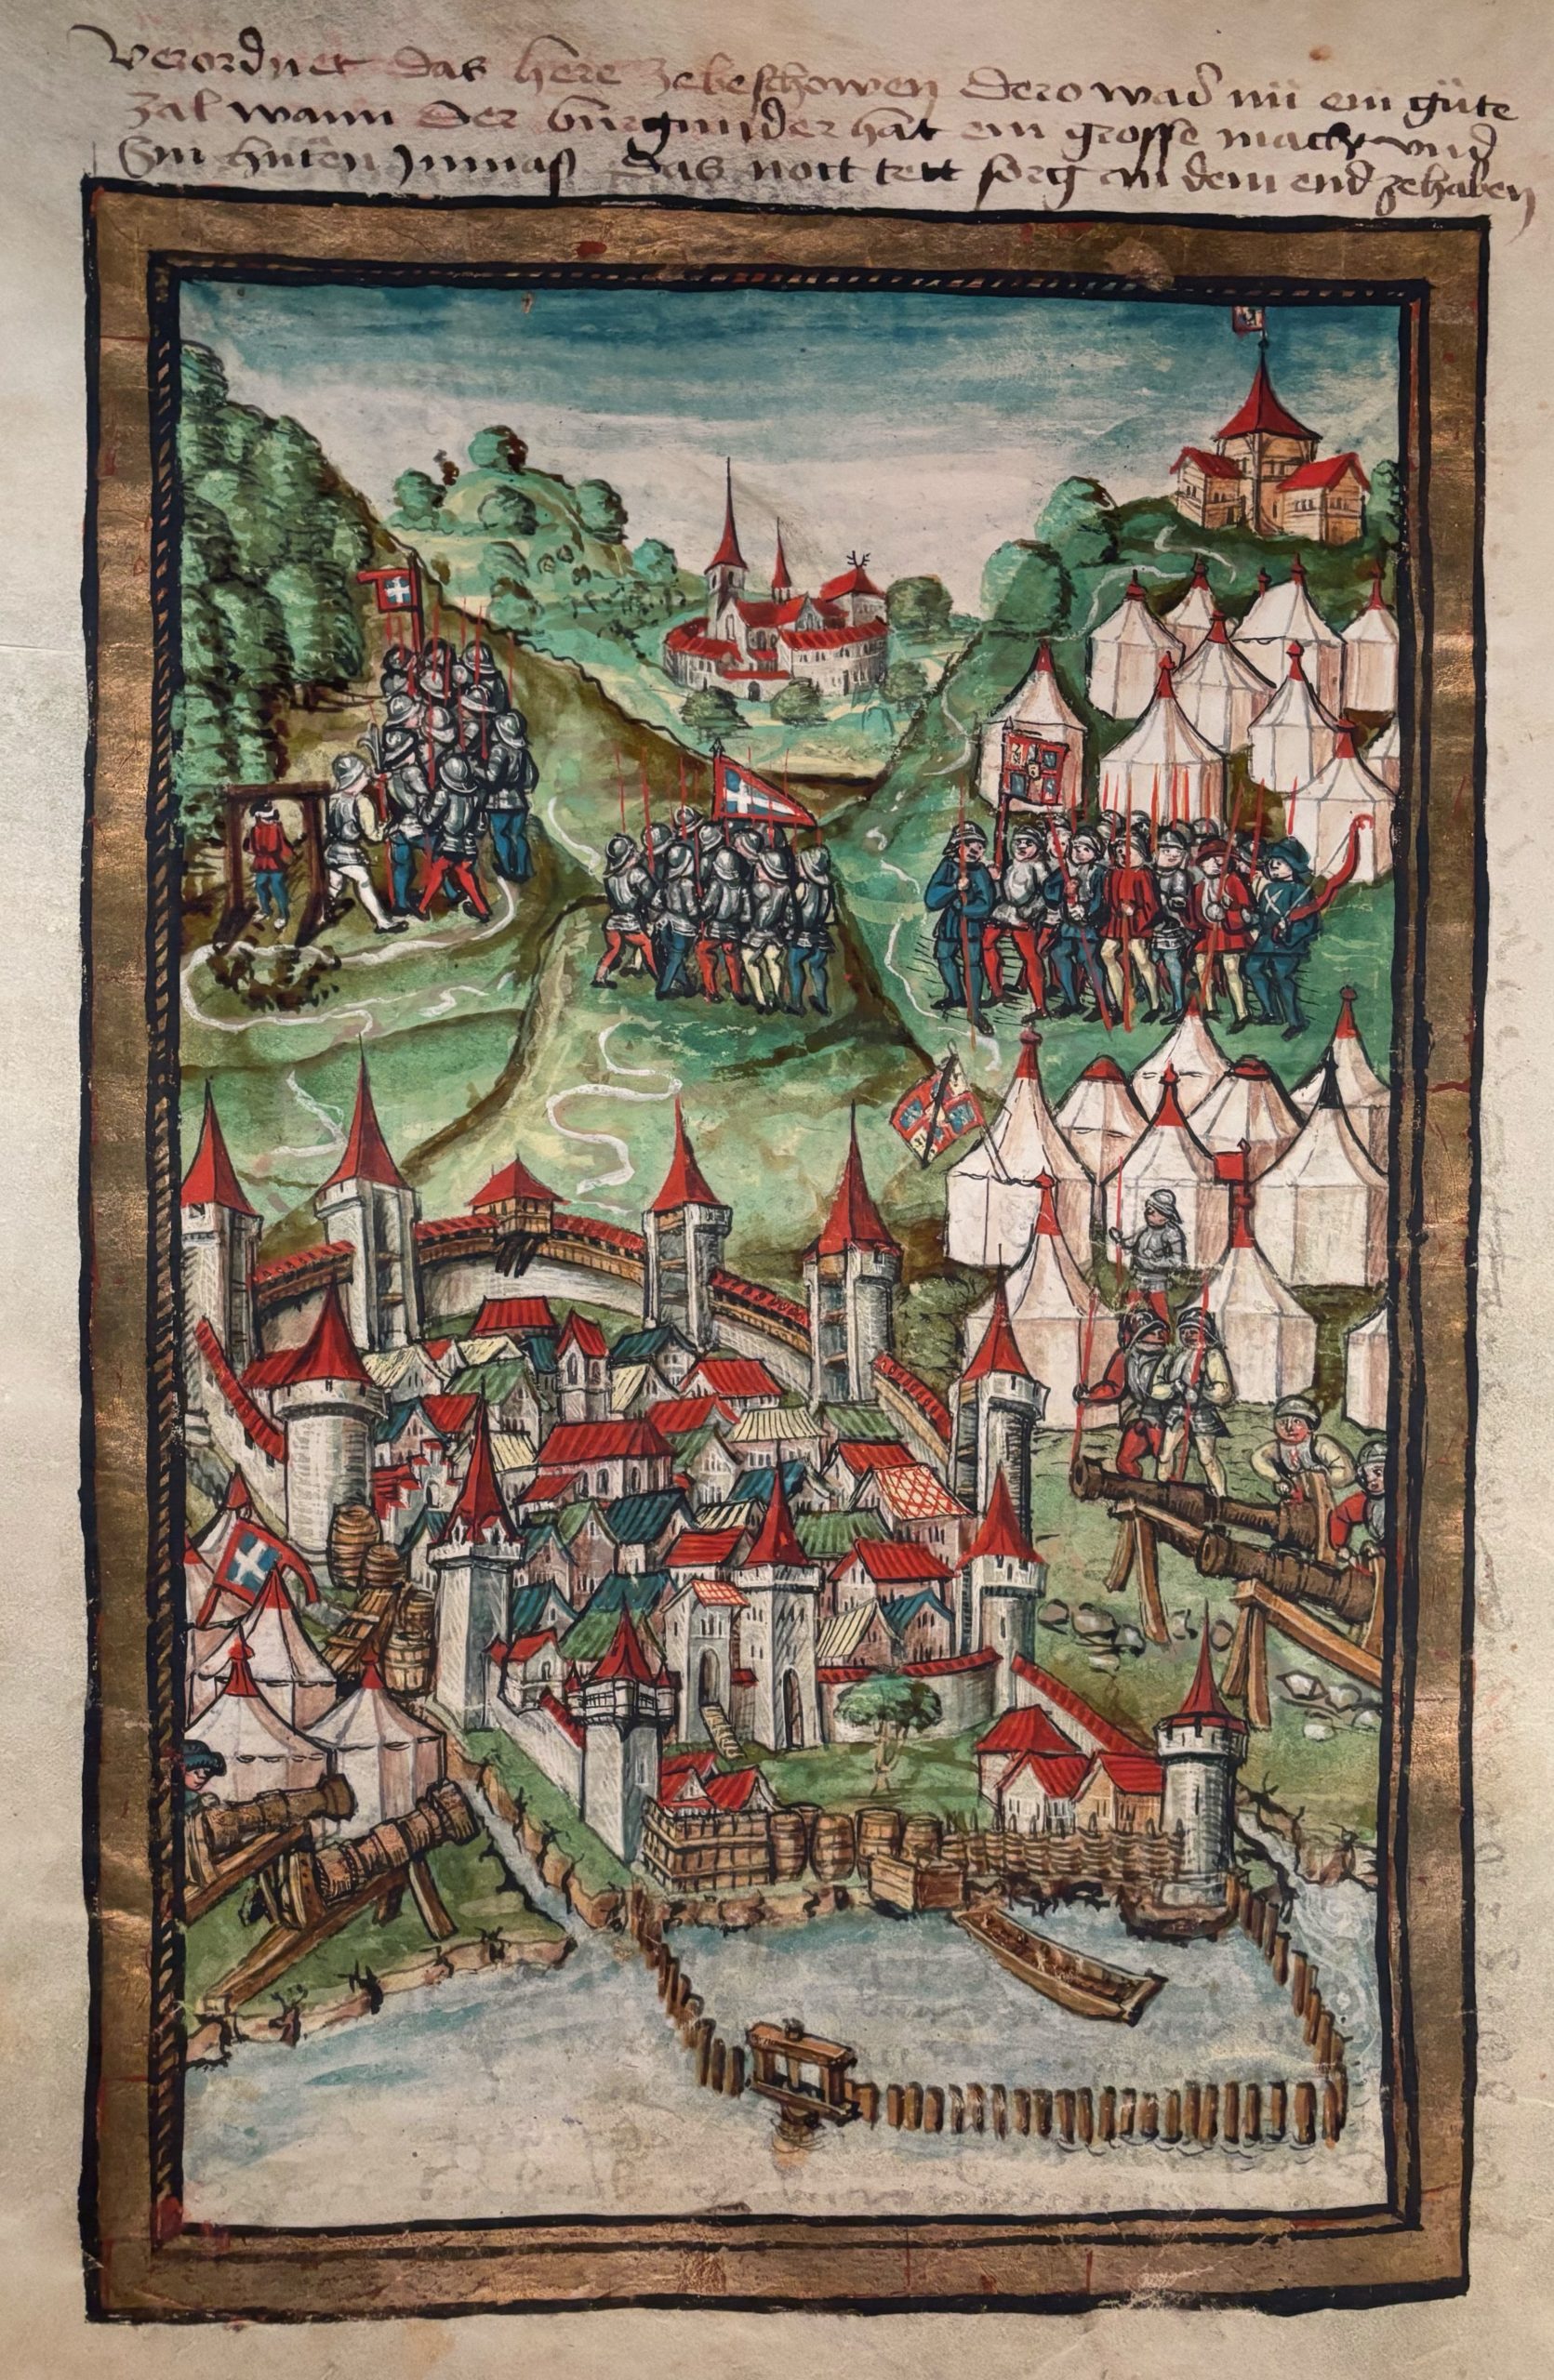 verordnet das here zebeschowen dero was nü ein güte
zal wann der burgunder hat ein grosse macht vnd
Sin hüten Inmaß das nott tett sorg an dem end zehaben